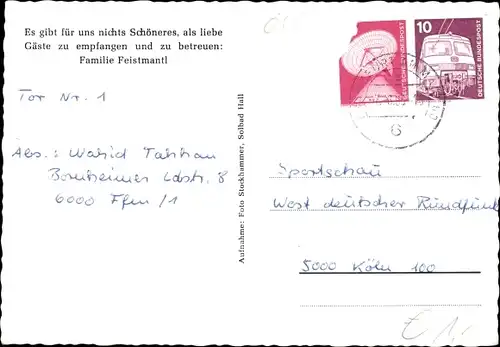 Es gibt für uns nichts Schöneres, als liebe
Gäste zu empfangen und zu betreuen:
Familie Feistmantl
Tor Nr. 1
Abs.: Wahid Tahhan
Bornheimer Ldstr. 8
6000 Ffm /1
Aufnahme: Foto Stockhammer, Solbad Hall
DEUTSCHE BUNDESPOST
10
DEUTSCHE BUNDESPOST
6
Sportschau
West deutscher Rundfunk
5000 Köln 100